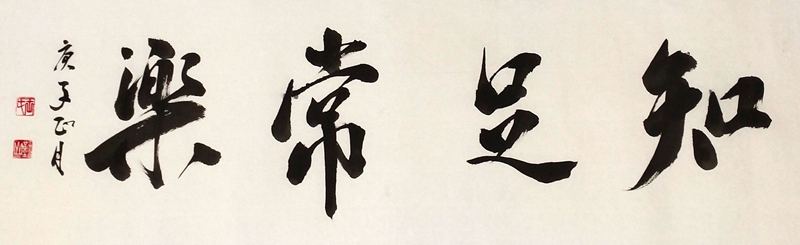 知足常樂
庚子正月